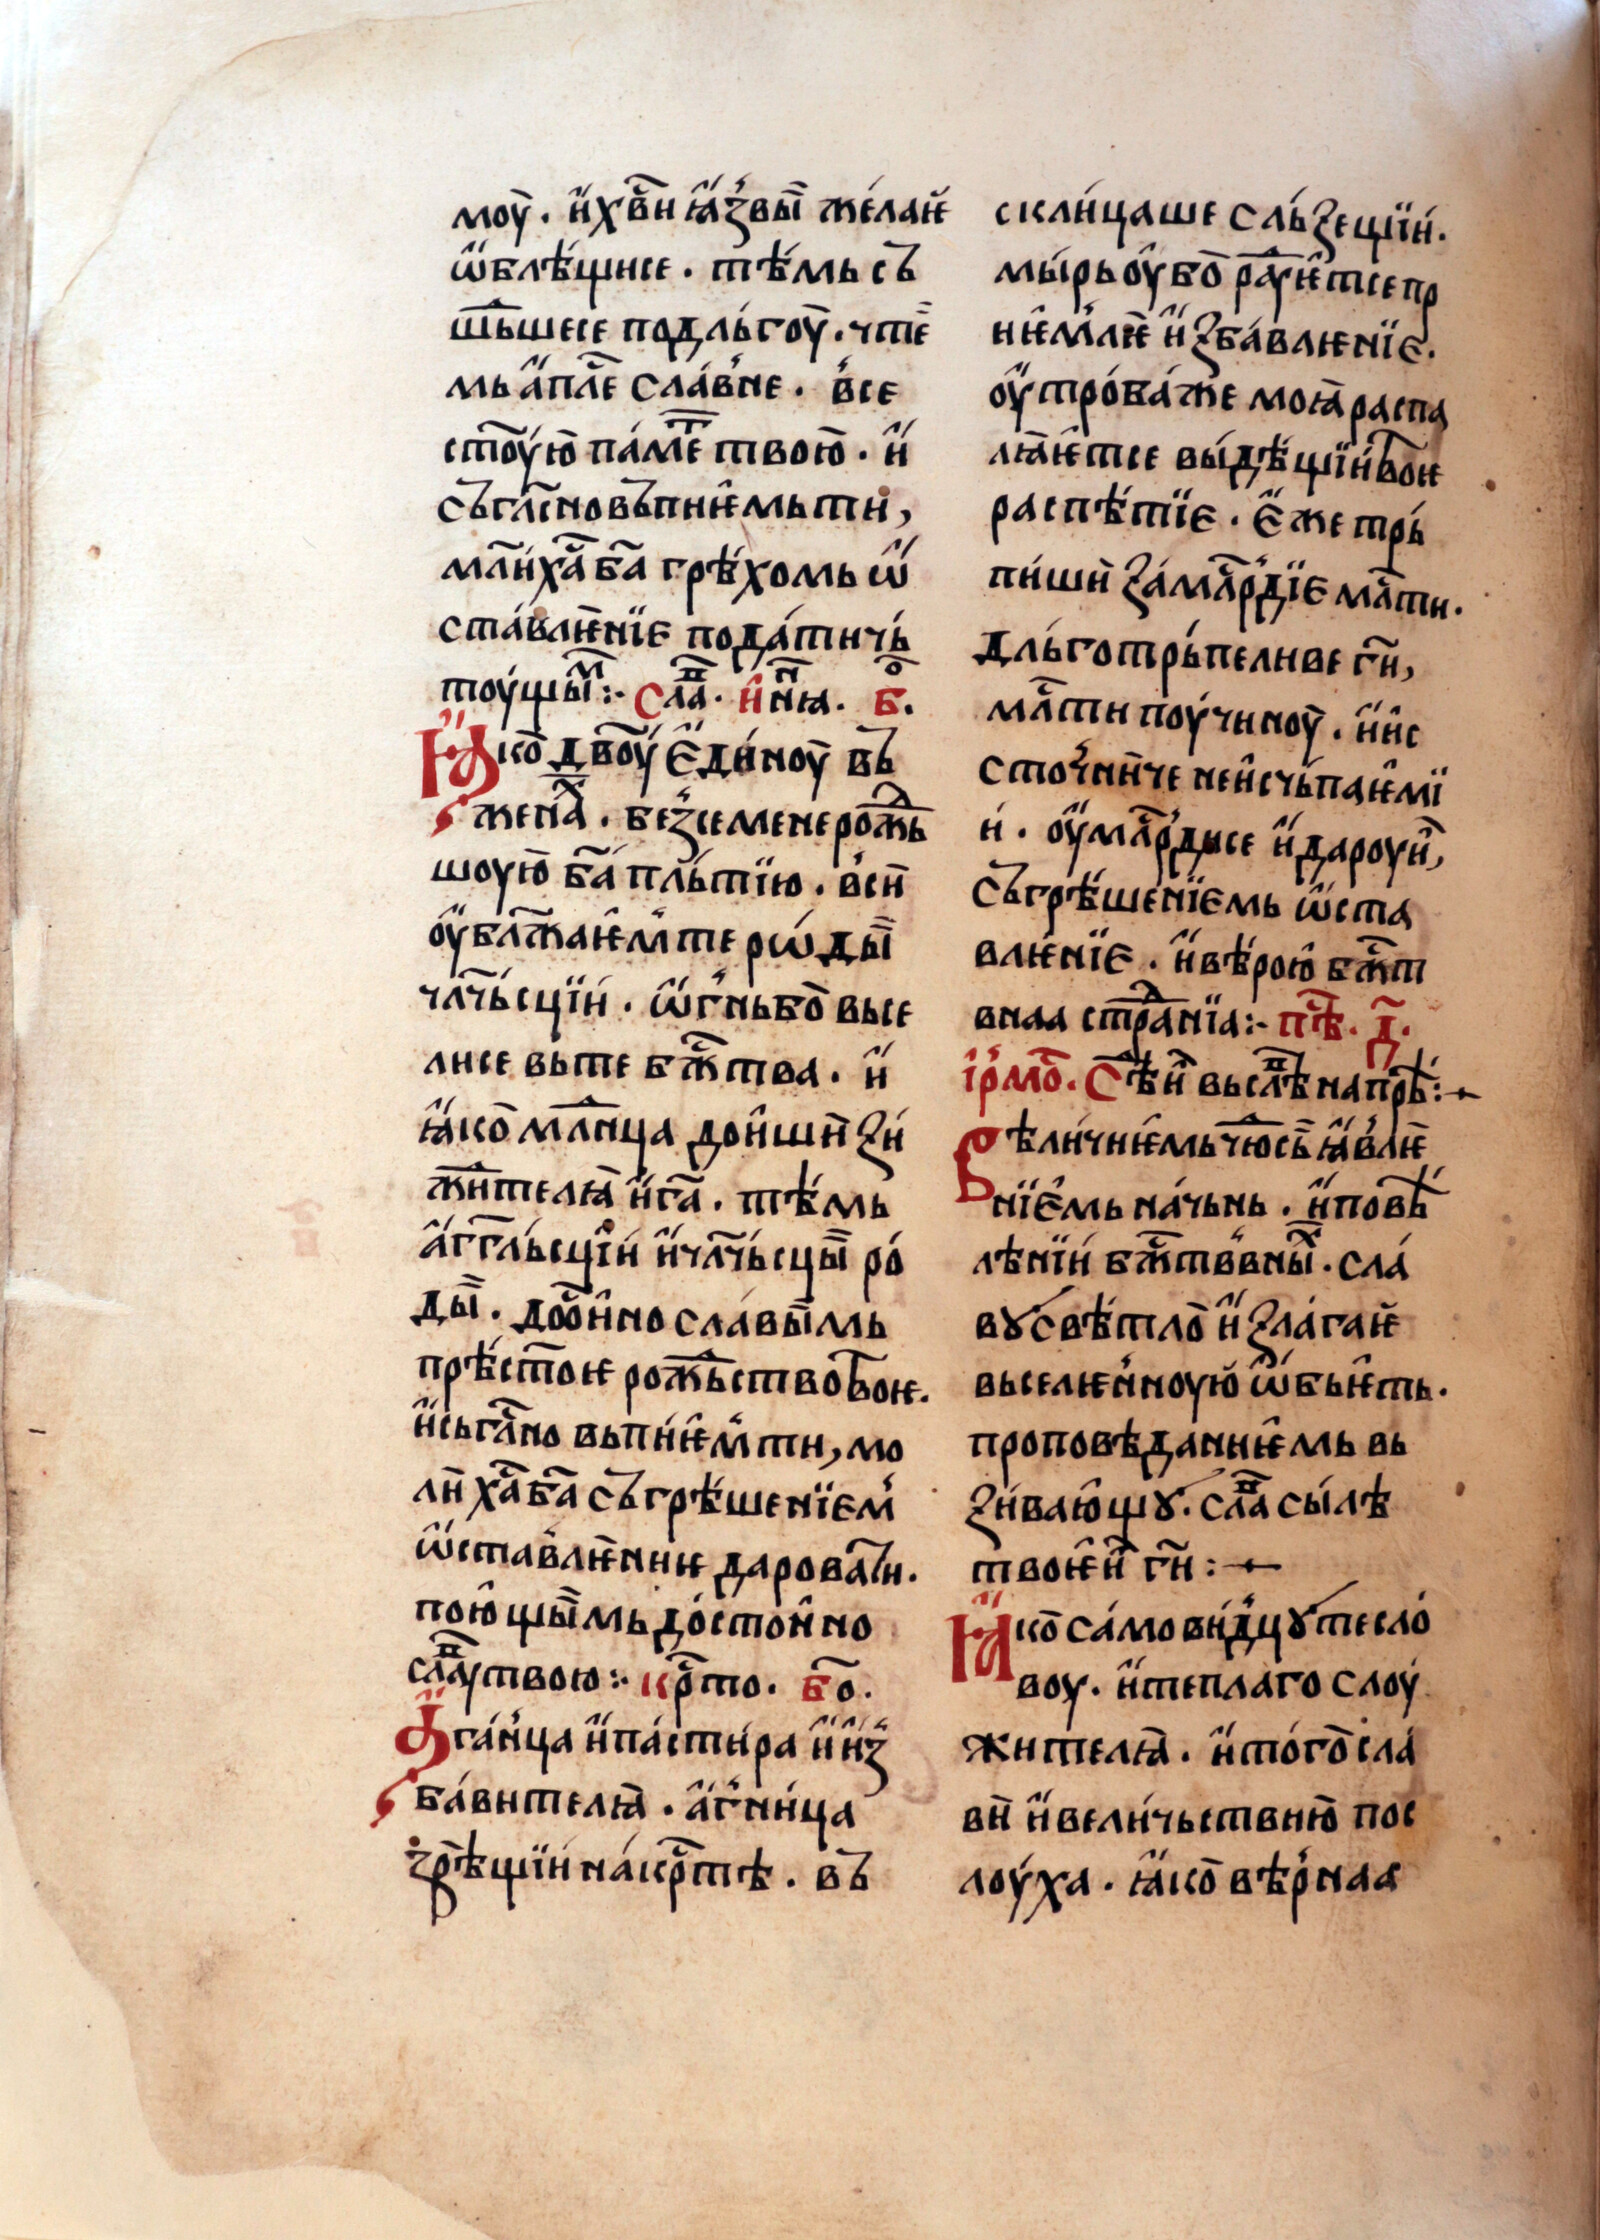 моу̀. и҆ х҃вн ꙗ҆́звы̏ же́лан҄ꙗ
ѡ҆бле́щисе. тѣ́мь съ
ше́ьшесе по дльгоу̀. чте҃
мь а҆пл҃е сла́вне. в҆се
ст҃ѹю па́меть твою̀. и҆
съгл҃сно въпїѥ҆мь ти,
мл҃и х҃а б҃а грѣ́хомь ѡ҆
ста́влѥнїе пода́ти чь́
тоу́щы̏м:· сла҃. и҆ ню҃ꙗ. б҃о.
Ꙗ҆ко дв҃ою є҆ди́ноу въ
жена́х. бе҆ꙁ семене рожь҃
шоую̀ б҃а пльтїю. в҆си
оу҆блж҃аѥ҆м те рѡ́ды̏
чл҃чь́сцїи. ѡ҆́гнь бо̀ высе
лисе вь те бж҃тва. и҆
ꙗ҆ко мл҃нца дои҆ши ꙁи
жи҃телꙗ и҆ г҃а. тѣ́мь
а҆гг҃льсцїи и҆ чл҃чьсцы̏ ро́
ды̏. до҃ои҆но сла́вы̏мь
прѣ́ст҃оѥ рожь҃ство твоѥ.
и҆ сьгл҃но вьпи́ѥ҆м ти, мо
ли х҃а б҃а съгрѣ́шенїем
ѡ҆ставлѥ́ниѥ даровати.
пою҆щы̏мь до́стои҆но
сла҃у твою:· кр҃то. б҃о.
Ꙗ҆га́н҆ца и҆ па́сти́ра и҆ и҆ꙁ
ба́вителꙗ. а҆́гн҆и́ца
ꙁр҃ѣщїи на́ кр҃тѣ. въ
склица́ше сль́ꙁещїи.
мы́рь оу҆бо̀ ра҃уѥтсе пр
иѥ҆млѥ и҆ꙁба́влѥнїе.
оу҆тро́ба́ же моꙗ̀ распа
лꙗ́ѥтсе вы́дѣщїи твоѥ
распѣ́тїе. є҆же трь́
пи́ши ꙁа́ мл҃рдїе мл҃ти.
дль́готрь́пеливе г҃и,
мл҃ти поу́чиноу̀. и҆ и҆с
сточ҆ни́че неи҆счь́паѥ҆мї
и́. оу҆мл҃рдисе и҆ дароуи̏,
съгрѣ́шенїемь ѡ҆ста
влѥ́нїе. и҆ вѣ́рою бж҃т
внаа стра҃нїа:· пѣ҃. д҃.
і҆рмо҃. Сѣ҃ни высл҃ѣ на прѣ:
Вѣли́чиѥмь чю҃сь ꙗ҆влѥ
нїемь на́чьнь. и҆ повѣ
лѣнїи бж҃твв҆ны̏х. сла́
вꙋ свѣ́тло и҆ꙁла́гаѥ
вьселѥ҆нноую̀ ѡ҆бьѥ҆ть.
проповѣданиѥмь вь
ꙁи́ваю҆щꙋ. сла҃ сы́лѣ
твоѥи г҃и:
Ꙗ҆ко са́мови́дцꙋ те сло́
воу. и҆ теплаго слоу́
жителꙗ. и҆ то́го сла́
ви и҆ вели́чьствию̀ пос
лоу́ха. ꙗ҆ко вѣ́р҆наа